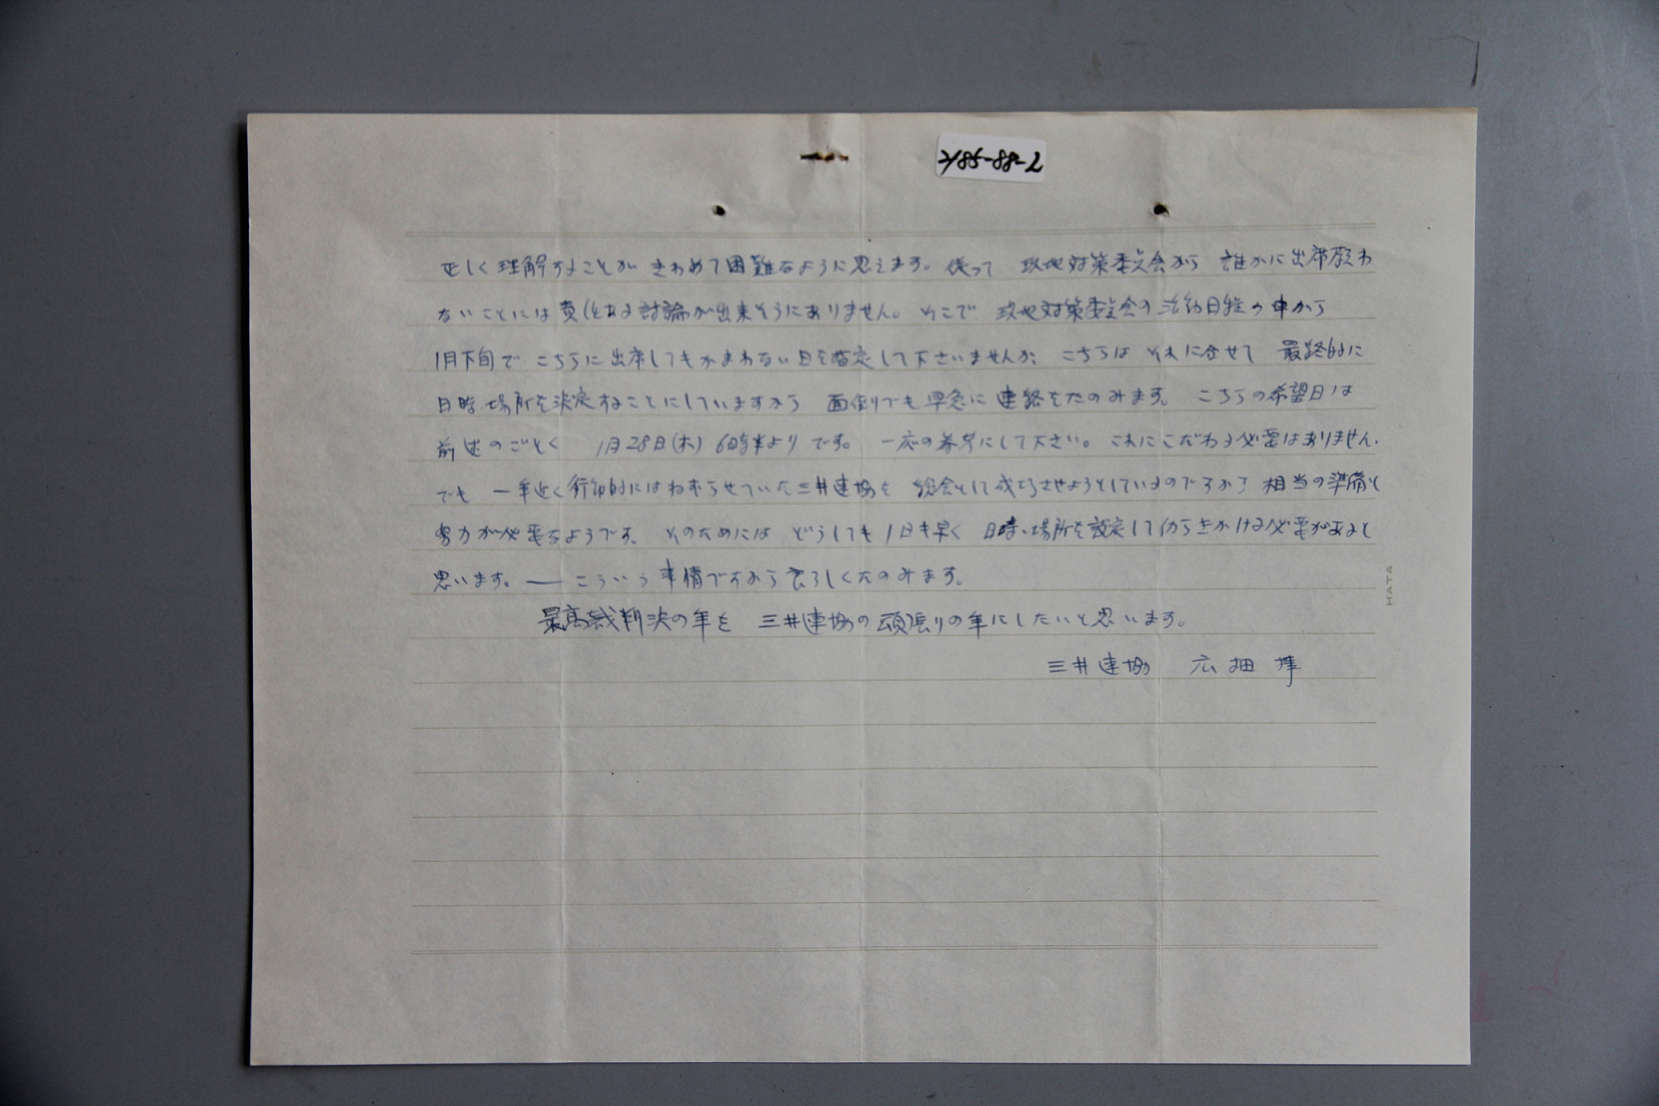 2185-88-2
正しく理解することが きわめて困難なように思えます。従って 現地対策委員会から 誰かに出席願わ
ないことには 実しとある討論が出来そうにありません。そこで 現地対策委員会の活動日程の中から
1月下旬で こちらに出席してもかまわない日を指定して下さいませんか こちらは それに合せて 最終的に
日時、場所を決定することにしていますから 面倒でも早急に連絡をたのみます。 こちらの希望日は
前述のごとく 1月28日(木) 6時半より です。 一応の参考にして下さい。これにこだわる必要はありません。
でも 一年近く行動的にはねむらせていた三井連協を 総会として成功させようとしているのですから 相当の準備と
努力が必要なようです。そのためには どうしても1日も早く 日時、場所を設定して 仂らきかける必要があると
思います。— こういう事情ですから宜ろしくたのみます。
最高裁判決の年を 三井連協の頑張りの年にしたいと思います。
三井連協 広畑
HATA